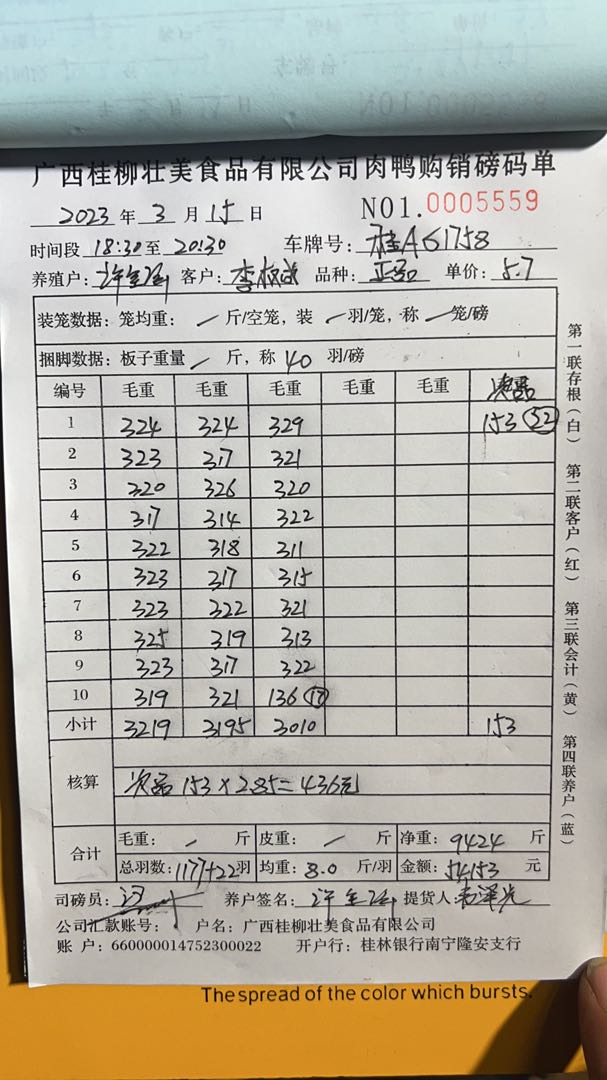 广西桂柳壮美食品有限公司肉鸭购销磅码单
2023 年 3 月 15 日 NO1.0005559
时间段 18:30 至 20:30 车牌号: 桂AG1758
养殖户: 客户: 品种: 正品 单价: 5.7
装笼数据: 笼均重: / 斤/空笼, 装 / 羽/笼, 称 / 笼/磅
捆脚数据: 板子重量 / 斤, 称 40 羽/磅
编号 毛重 毛重 毛重 毛重 毛重 次品
1 324 324 329 153 (52)
2 323 317 321
3 320 326 320
4 317 314 322
5 322 318 311
6 323 317 315
7 323 322 321
8 325 319 313
9 323 317 322
10 319 321 136 (17)
小计 3219 3195 3010 153
核算 次品 153 × 2.85 = 436元
合计 毛重: / 斤 皮重: / 斤 净重: 9424 斤
总羽数: 1177+22 羽 均重: 8.0 斤/羽 金额: 54153 元
司磅员: 养户签名: 提货人:
公司汇款账号: 户名: 广西桂柳壮美食品有限公司
账 户: 660000014752300022 开户行: 桂林银行南宁隆安支行
第一联存根(白) 第二联客户(红) 第三联会计(黄) 第四联养户(蓝)
The spread of the color which bursts.